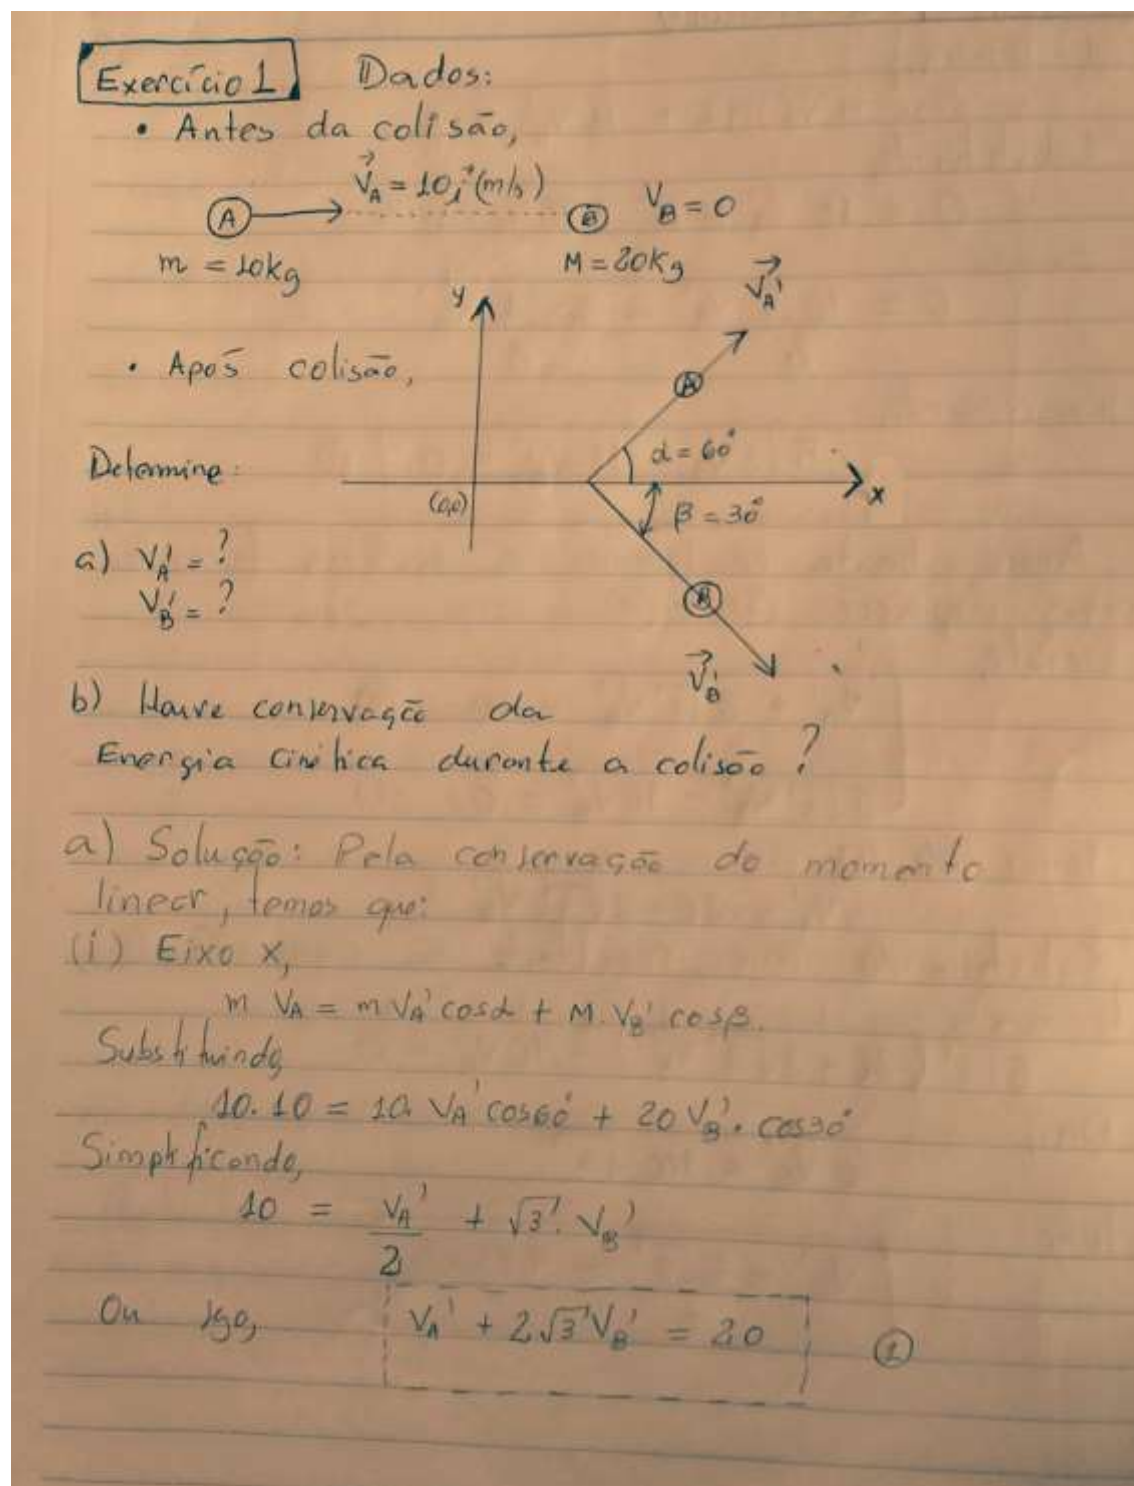 Exercício 1 Dados:
• Antes da colisão,
V⃗_A = 10 i⃗ (m/s)
A B V_B = 0
m = 10kg M = 20kg
V⃗_A'
y
A
• Após colisão,
α = 60°
Determine:
x
(0,0)
β = 30°
a) V_A' = ?
V_B' = ?
B
V⃗_B'
b) Houve conservação da
Energia cinética durante a colisão?
a) Solução: Pela conservação do momento
linear, temos que:
(i) Eixo x,
m V_A = m V_A' cosα + M. V_B' cosβ.
Substituindo,
10. 10 = 10. V_A' cos60° + 20 V_B'. cos30°
Simplificando,
10 = V_A'/2 + √3. V_B'
Ou seja, V_A' + 2√3 V_B' = 20 ①